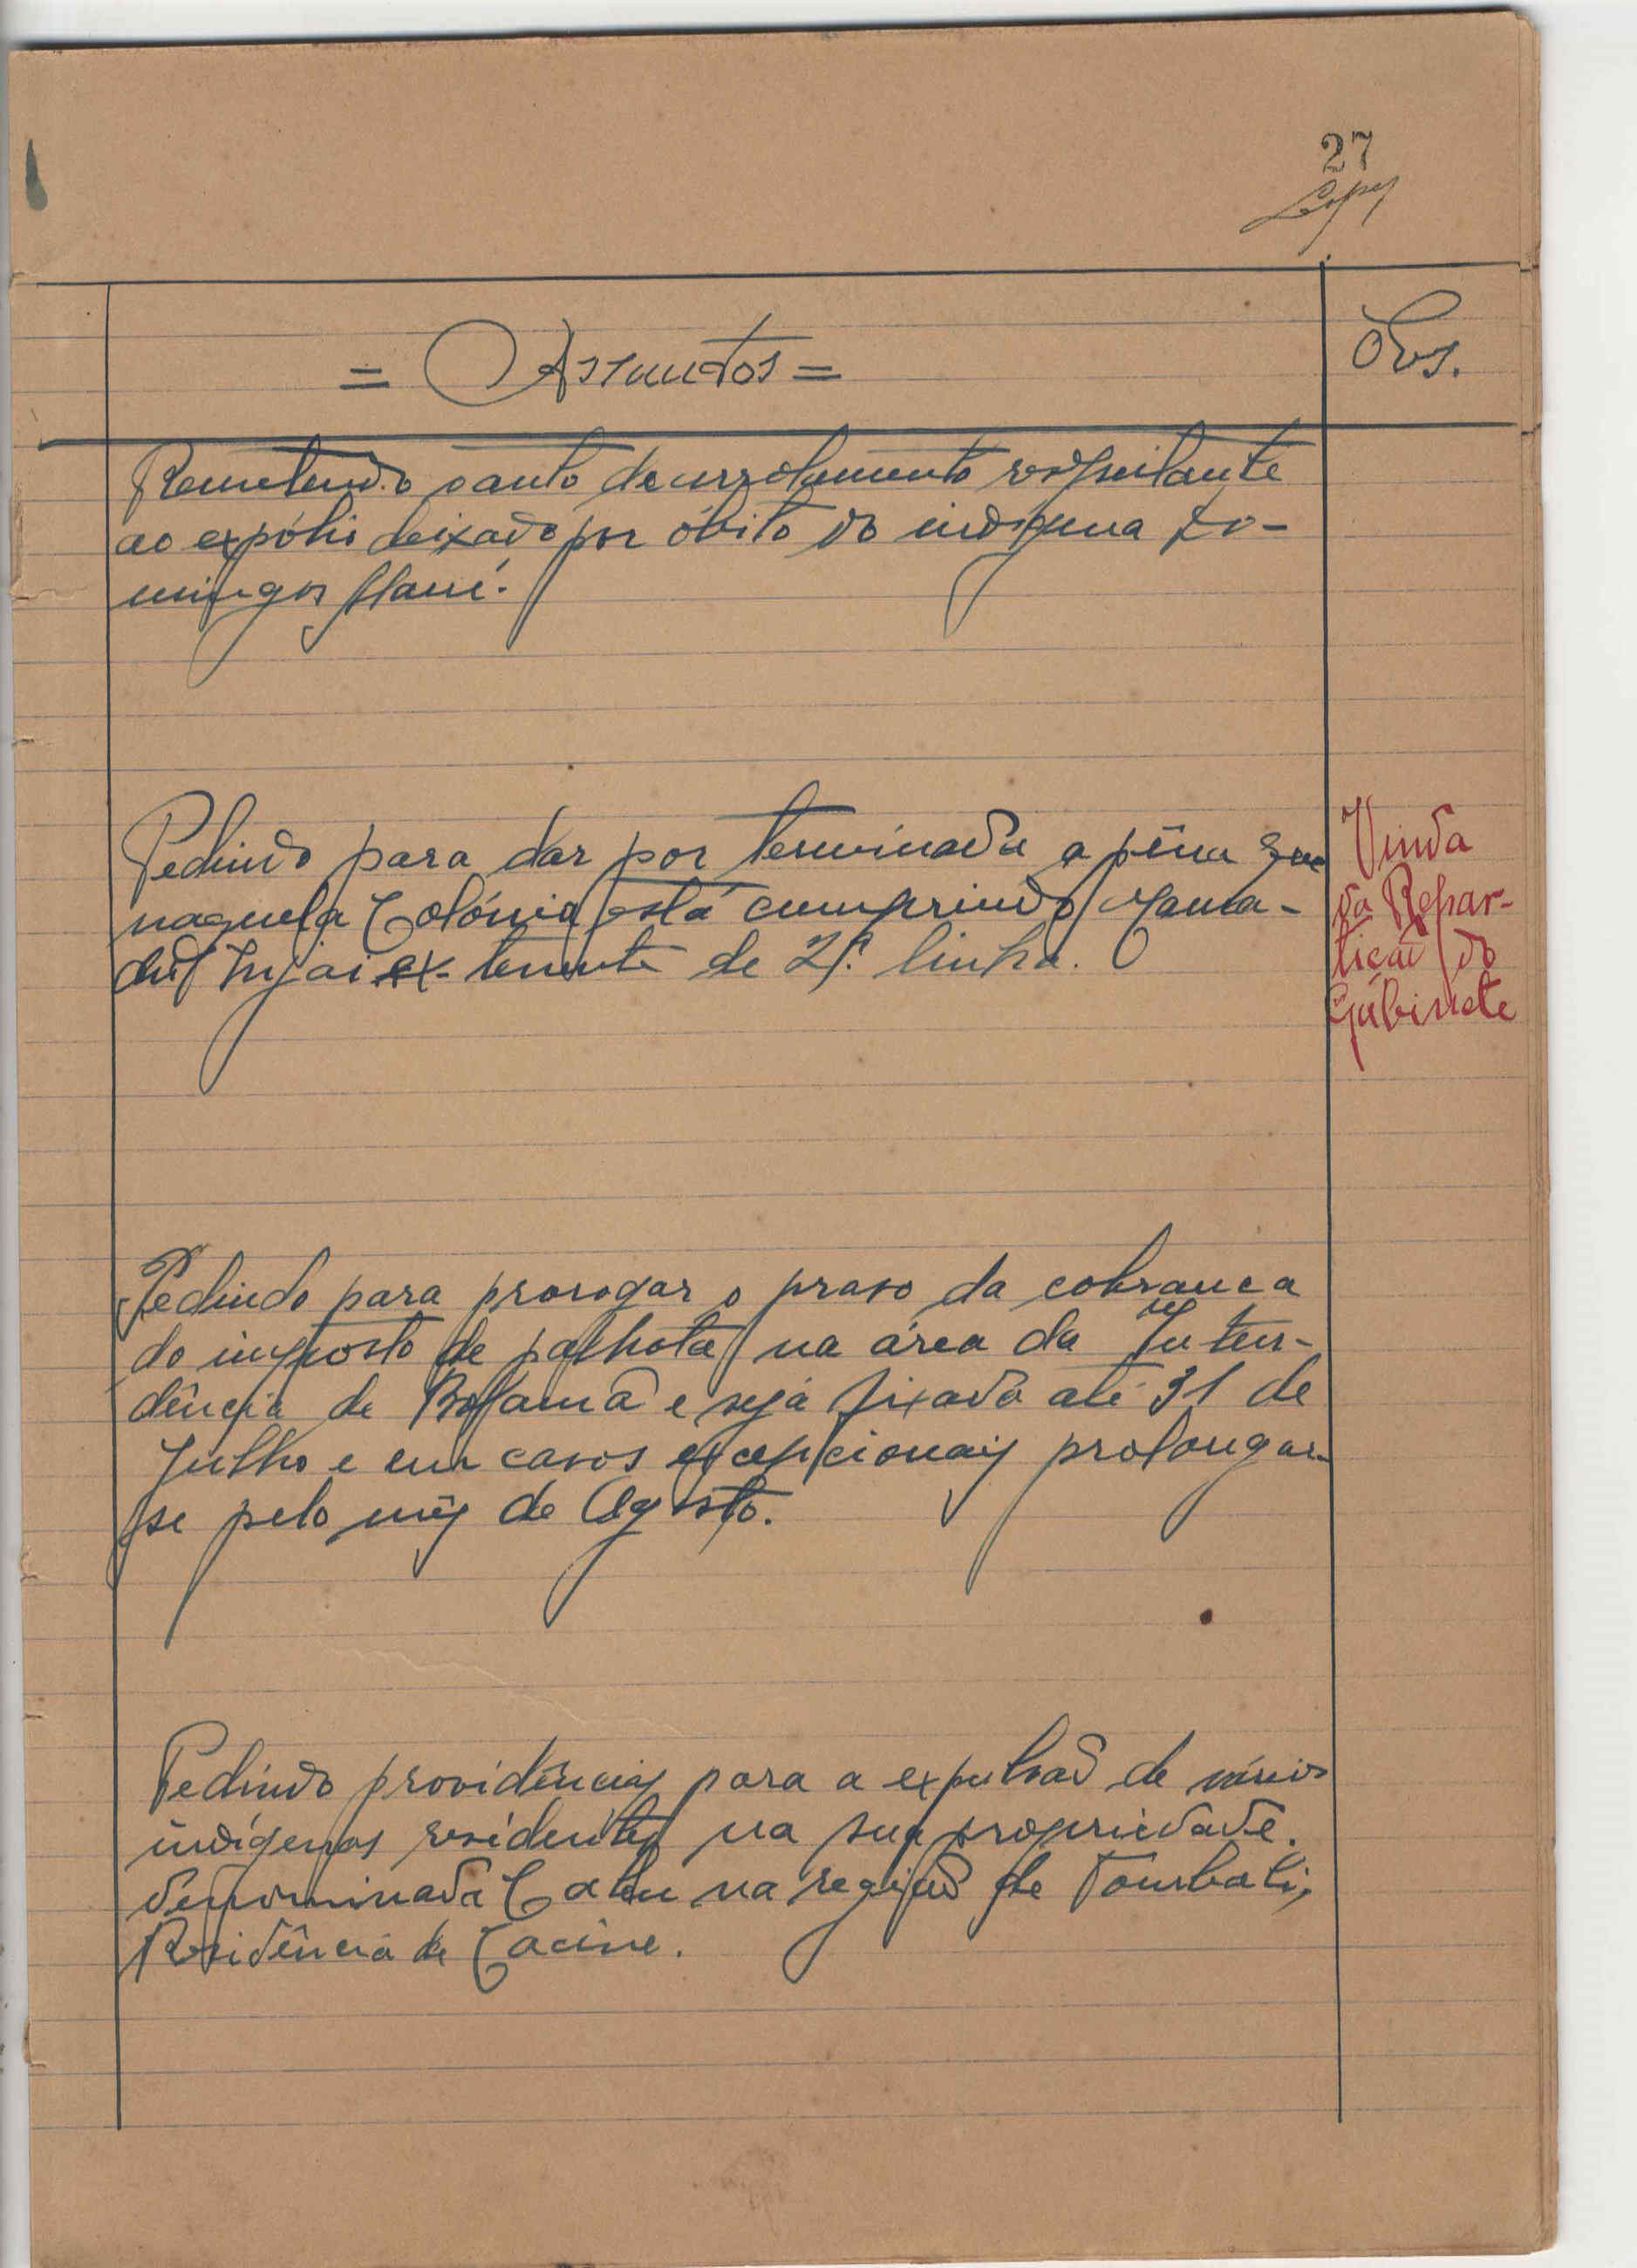 27
Lopes
= Assuntos =
Obs.
Remetendo o auto de arrolamento respeitante
ao expólio deixado por óbito do indígena Do-
mingos Mané.
Pedindo para dar por terminada a pêna que
naquela Colónia está cumprindo Mama-
du Injai ex-tenente de 2ª. linha.
Vinda
da Repar-
tição do
Gabinete
Pedindo para prorogar o praso da cobrança
do imposto de palhota na área da Inten-
dência de Bolama e seja fixado até 31 de
Julho e em casos excepcionais prolongar-
se pelo mês de Agosto.
Pedindo providências para a expulsão de vários
indígenas residentes na sua propriedade
denominada na região de Tombali,
Residência de Cacine.